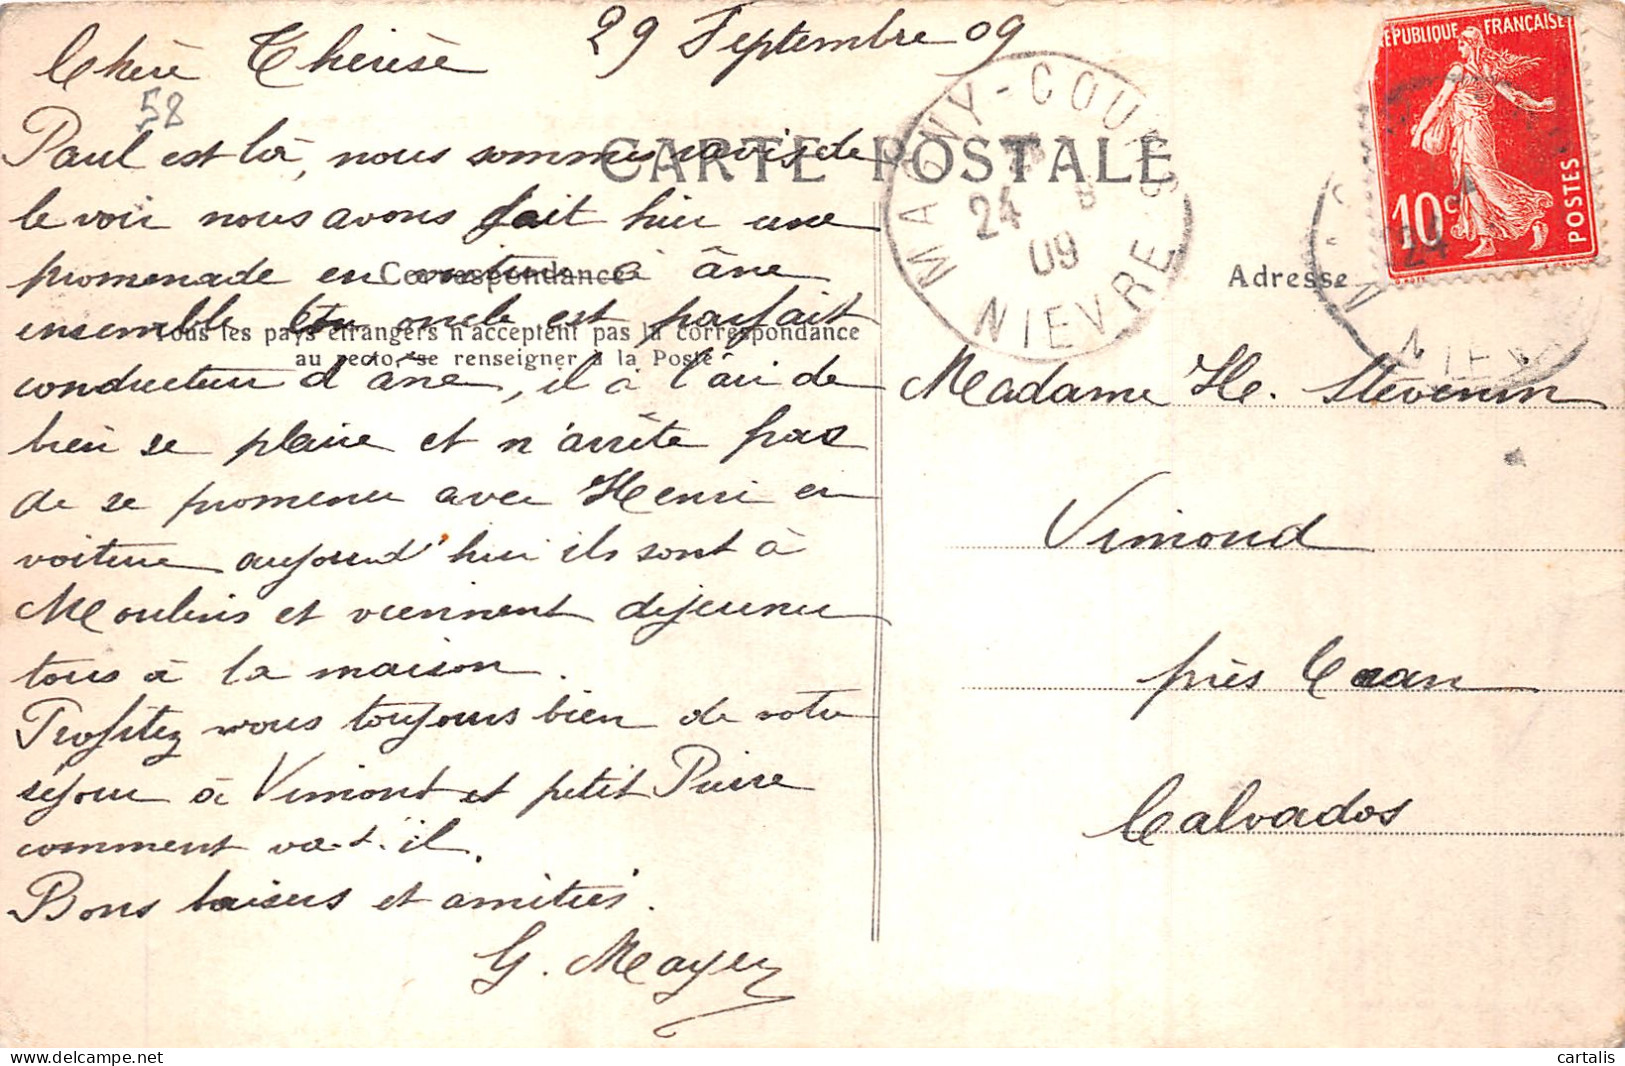 29 Septembre 09
Chère Thérèse
58
Paul est là, nous sommes ravis de
le voir nous avons fait hier une
promenade en voiture à âne
ensemble ton oncle est parfait
conducteur d'âne, il à l'air de
bien se plaire et n'arrête pas
de se promener avec Henri en
voiture aujourd'hui ils sont à
Moulins et viennent déjeuner
tous à la maison.
Profitez vous toujours bien de votre
séjour à Vimont et petit Pierre
comment va-t-il.
Bons baisers et amitiés.
G. Mayer
CARTE POSTALE
Correspondance
Tous les pays étrangers n'acceptent pas la correspondance
au recto, se renseigner à la Poste
MAGNY-COURS
24 8
09
NIEVRE
RÉPUBLIQUE FRANÇAISE
10c
POSTES
24
NIEV
Adresse
Madame H. Stévenin
Vimond
près Caan
Calvados
cartalis